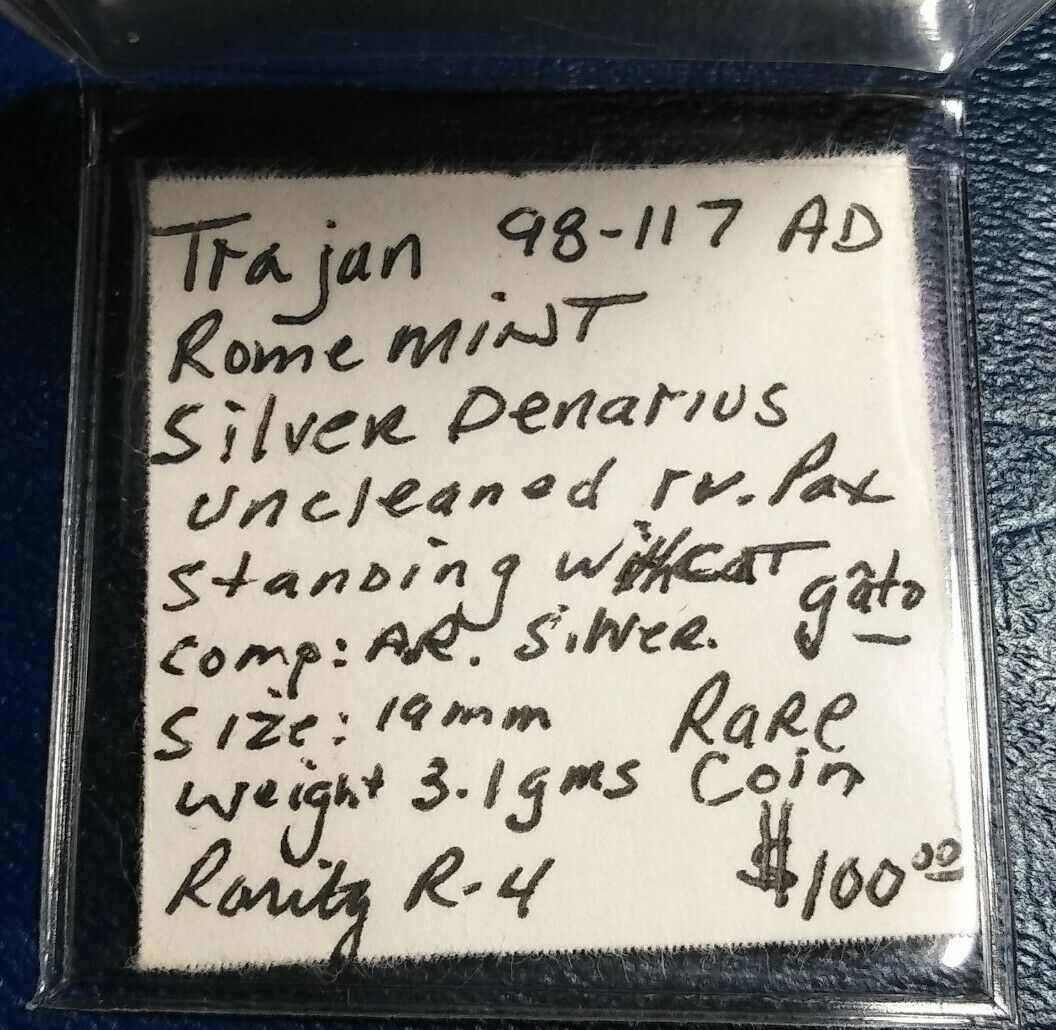 Trajan 98-117 AD
Rome MINT
Silver Denarius
uncleaned rv. Pax
standing w cat gâto
comp: AR. Silver.
Size: 19mm Rare
weight 3.1gms Coin
Rarity R-4 $100.00